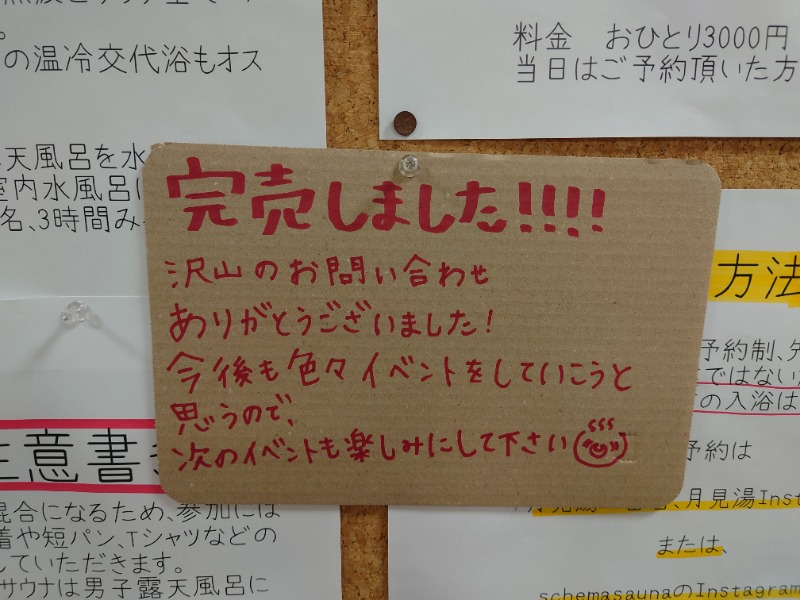 の温冷交代浴もオス
天風呂を水
室内水風呂
名、3時間み
料金 おひとり3000円
当日はご予約頂いた方
完売しました!!!!
沢山のお問い合わせ
ありがとうございました!
今後も色々イベントをしていこうと
思うので、
次のイベントも楽しみにして下さい
方法
予約制、先
ではない
の入浴は
予約は
、月見湯Inst
または、
schemasaunaのInstagram
注意書き
混合になるため、参加には
着や短パン、Tシャツなどの
していただきます。
サウナは男子露天風呂に